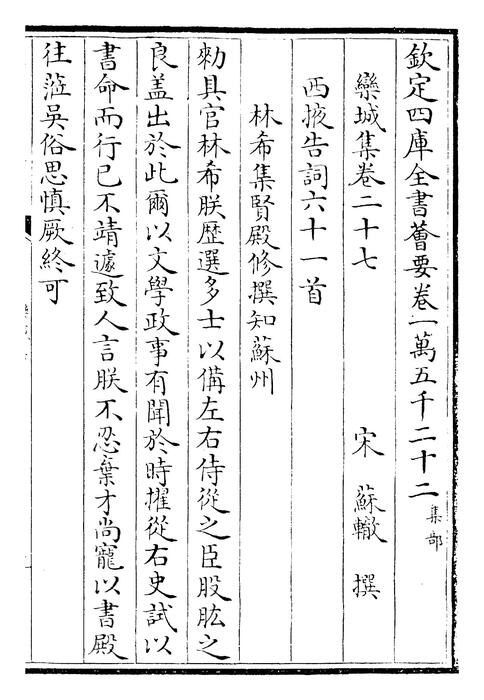 欽定四庫全書薈要卷一萬五千二十二 集部
欒城集卷二十七 宋 蘇轍 撰
西掖告詞六十一首
林希集賢殿修撰知蘇州
勑具官林希朕歴選多士以備左右侍從之臣股肱之
良盖出於此爾以文學政事有聞於時擢從右史試以
書命而行已不靖遽致人言朕不忍棄才尚寵以書殿
往蒞吳俗思慎厥終可